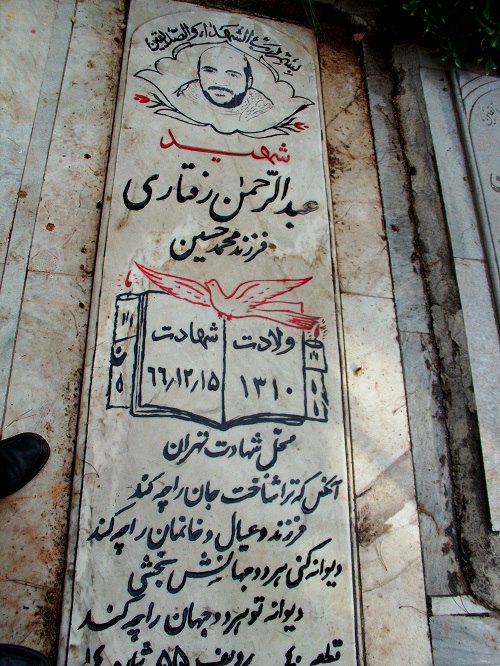 بسم رب الشهداء والصدیقین
شهید
عبدالرّحمٰن رفتاری
فرزند محمد حسین
ولادت
۱۳۱۰
شهادت
۶۶/۱۲/۱۵
محل شهادت تهران
آنکس که ترا شناخت جان را چه کند
فرزند و عیال و خانمان را چه کند
دیوانه کنی هر دو جهانش بخشی
دیوانه تو هر دو جهان را چه کند
قطعه ۴۰ ردیف ۵۵